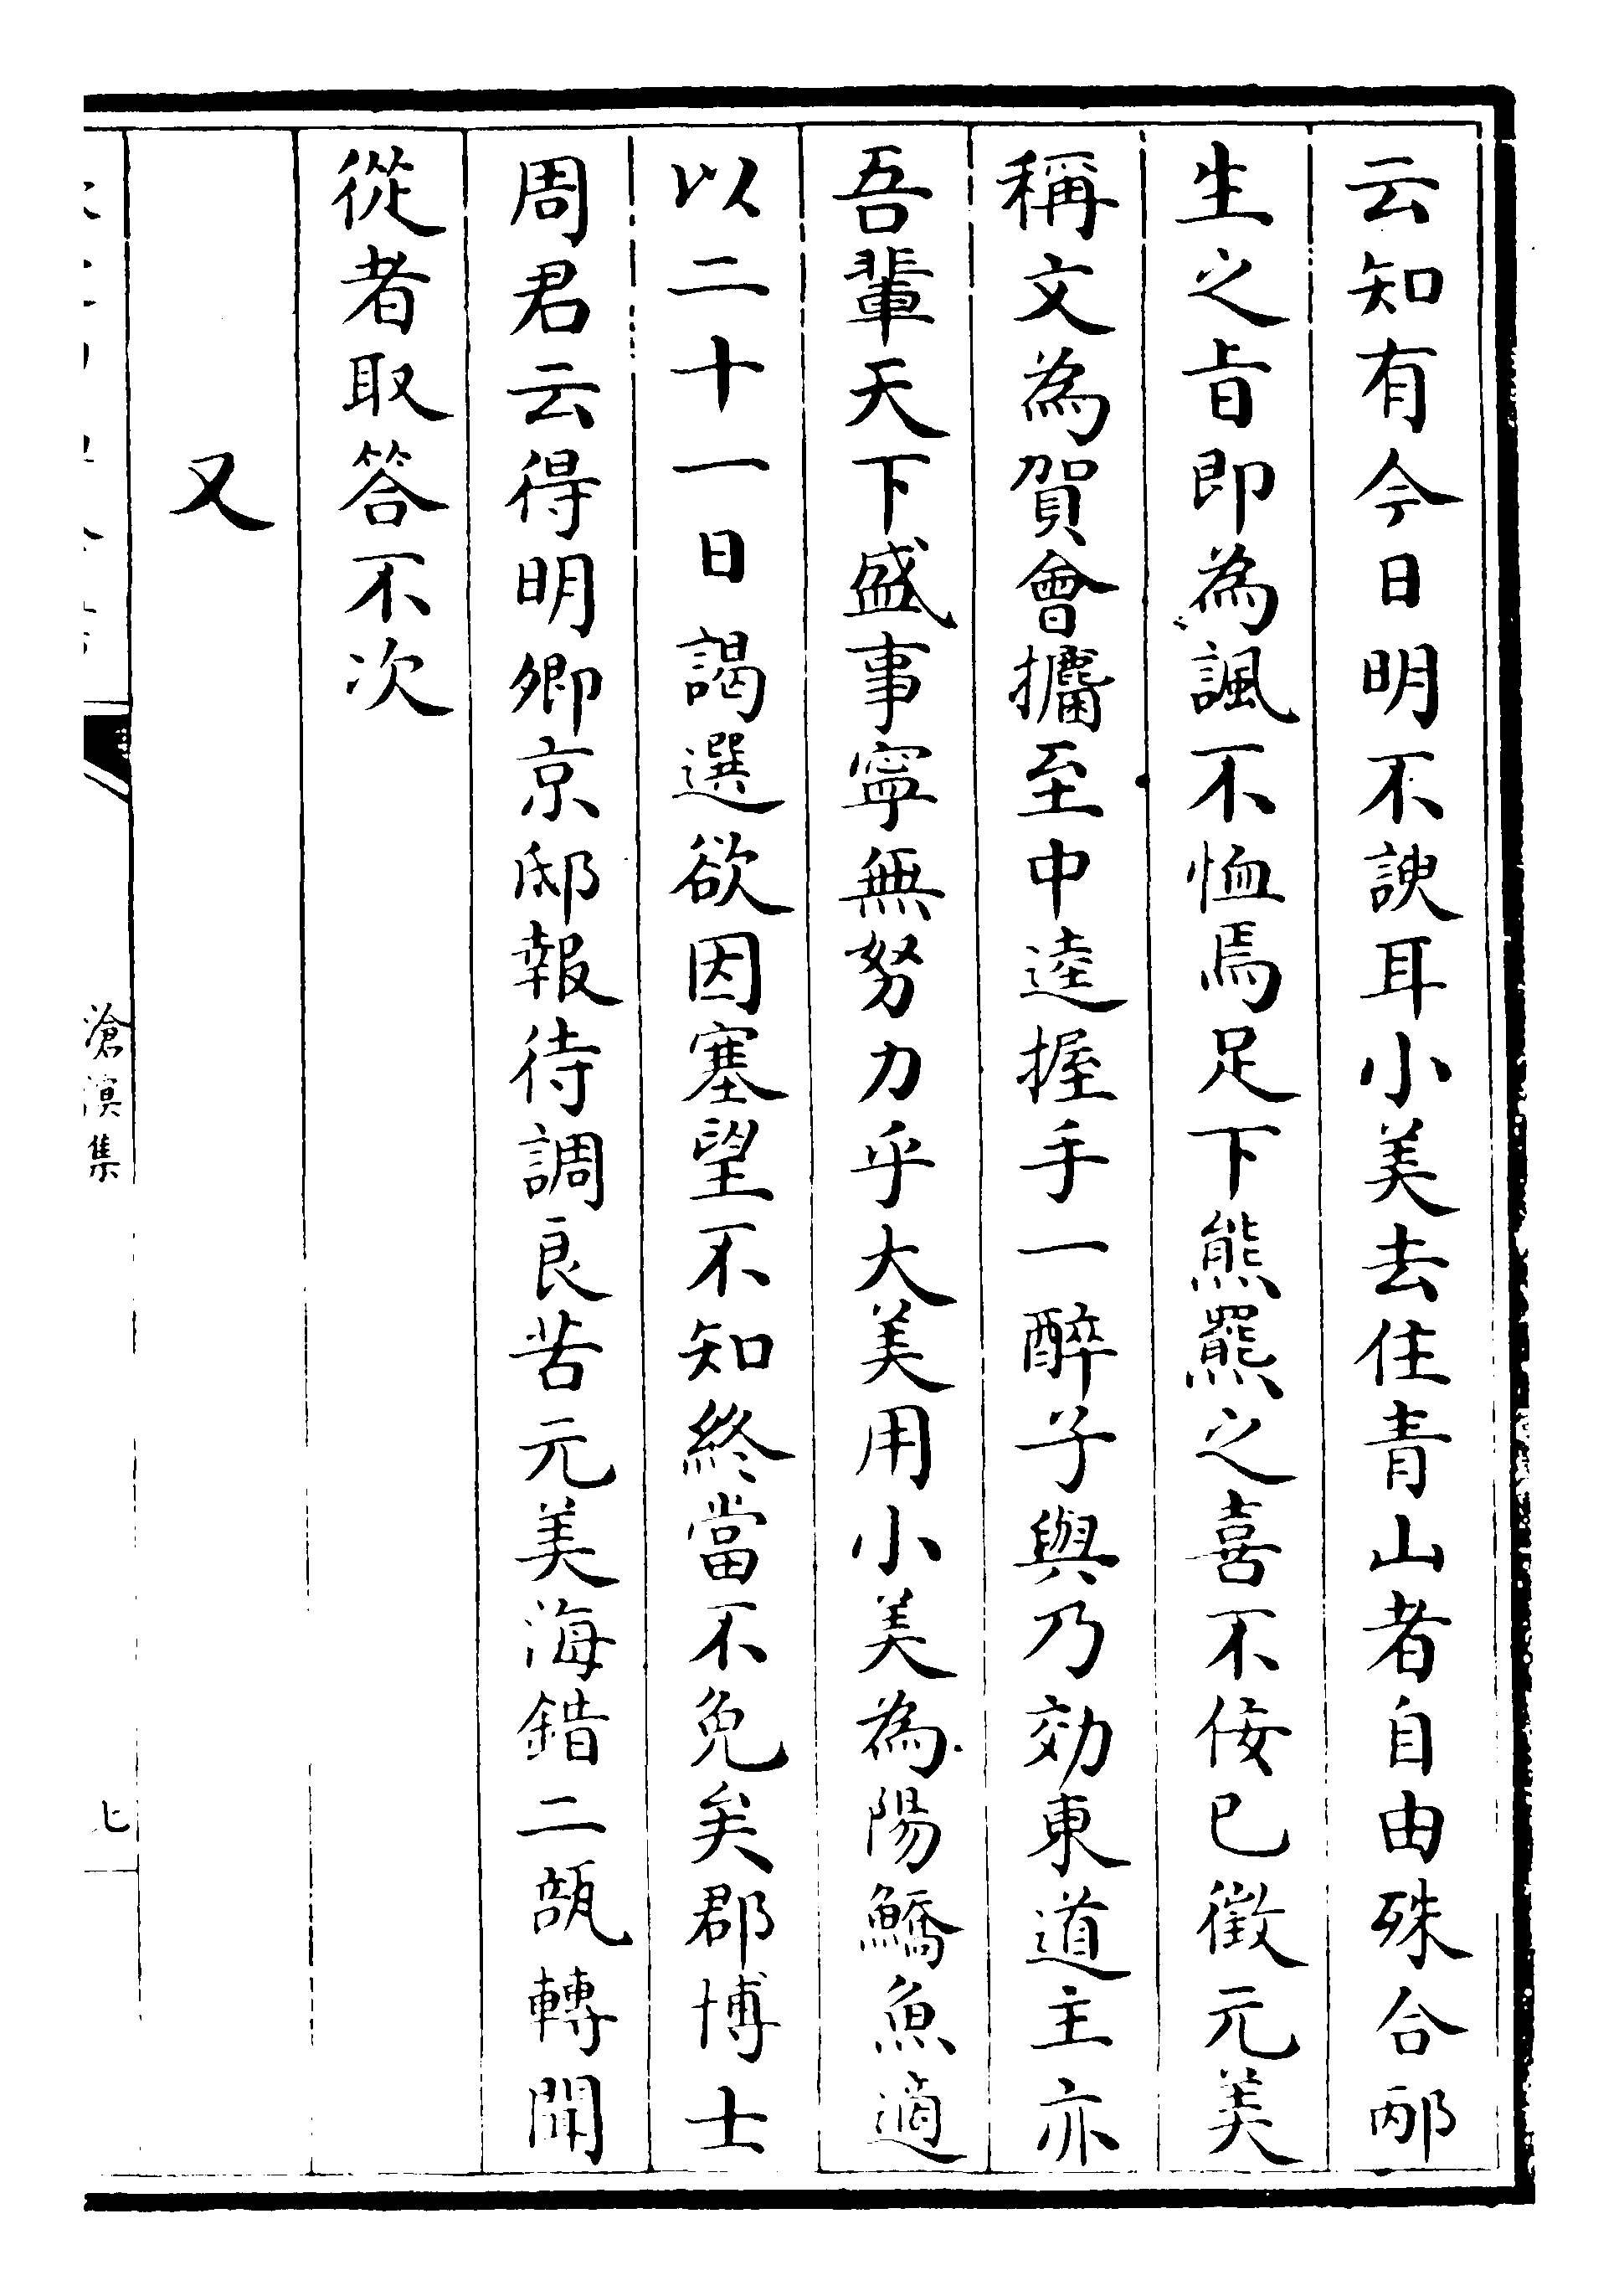 云知有今日明不諛耳小美去住青山者自由殊合邴
生之㫖即為諷不恤焉足下熊羆之喜不佞已徵元美
稱文為賀會攜至中逵握手一醉子與乃効東道主亦
吾輩天下盛事寧無努力乎大美用小美為陽鱎魚適
以二十一日謁選欲因塞望不知終當不免矣郡博士
周君云得明卿京邸報待調良苦元美海錯二瓿轉聞
從者取答不次
又
滄溟集
七